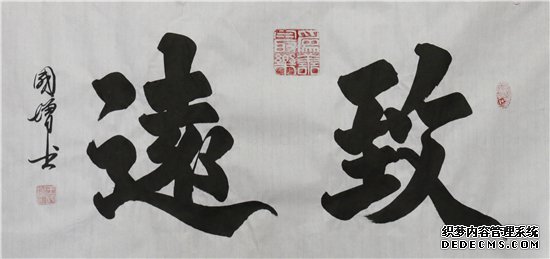 致遠
國增书
织梦内容管理系统
DEDECMS.COM